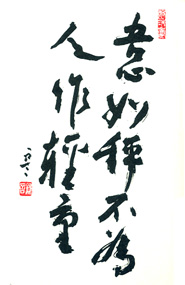 吾心如秤不為
人作輕重